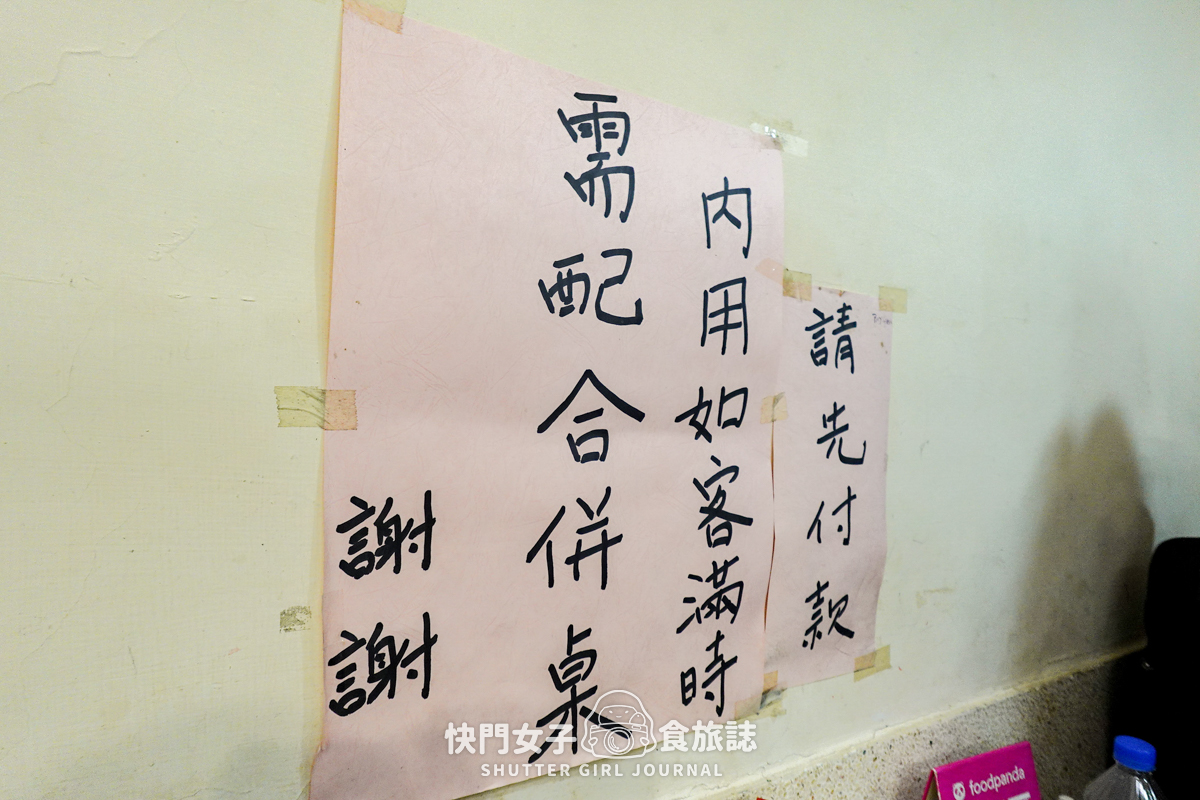 請先付款
內用如客滿時
需配合併桌
謝謝
快門女子食旅誌
SHUTTER GIRL JOURNAL
foodpanda